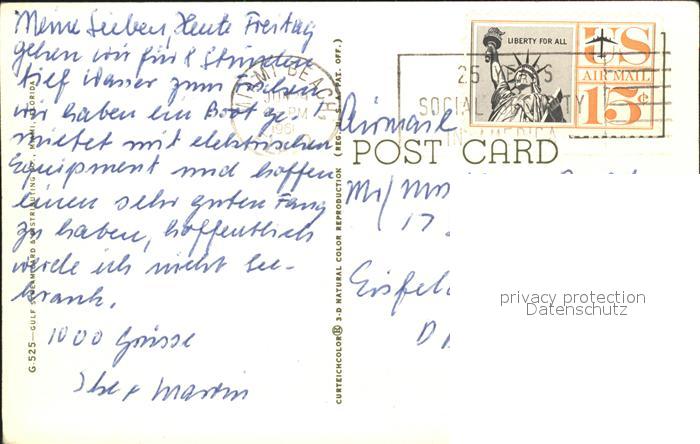 Meine Lieben, Heute Freitag
gehen wir für 8 Stunden
tief Wasser zum Fischen
wir haben ein Boot ge-
mietet mit elektrischen
Equipment und hoffen
einen sehr guten Fang
zu haben, hoffentlich
werde ich nicht See-
krank.
1000 Grüsse
Martin
G-525—GULF STREAM CARD & DISTRIBUTING CO., MIAMI, FLORIDA
CURTEICHCOLOR® 3-D NATURAL COLOR REPRODUCTION (REG. U.S.A. PAT. OFF.)
MIAMI BEACH,
PM
1961
25 YEARS
SOCIAL SECURITY
IN AMERICA
LIBERTY FOR ALL
US
AIR MAIL
15¢
Airmail
POST CARD
Mr/Mrs
17
privacy protection
Datenschutz